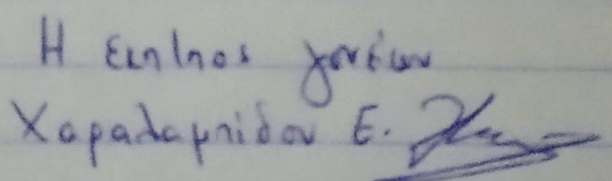 Η επιπλος γονέων
Χαραλαμπίδου Ε.